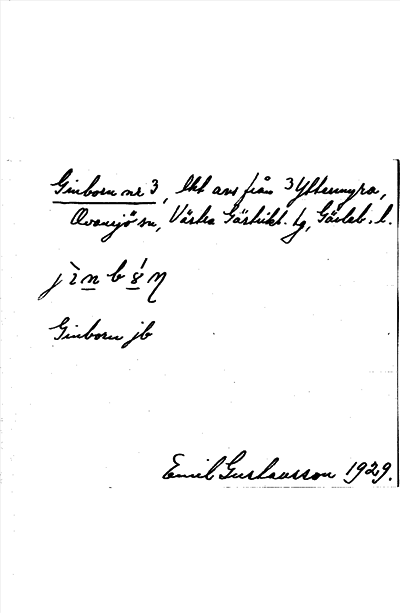 Ginborn nr 3, lht avs från 3 Yttermyra,
Ovansjö sn, Västra Gästrikl. tg, Gävleb. l.
Ginborn jb
Emil Gustavsson 1929.